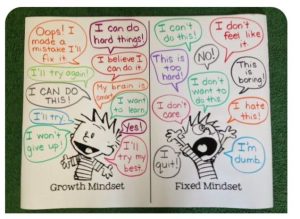 Oops! I
made a
mistake I'll
fix it.
I can do
hard things!
I believe I
can do it.
I'll try again!
I CAN DO
THIS!
My brain is
smart.
I want
to learn.
I'll try.
Yes!
I won't
give up!
I'll
try my
best.
Growth Mindset
I can't
do this!
I don't
feel like
it.
NO!
This is
too
hard!
This is
boring!
I don't
want to
do this.
I don't
care.
I hate
this!
I
quit!
I'm
dumb.
Fixed Mindset